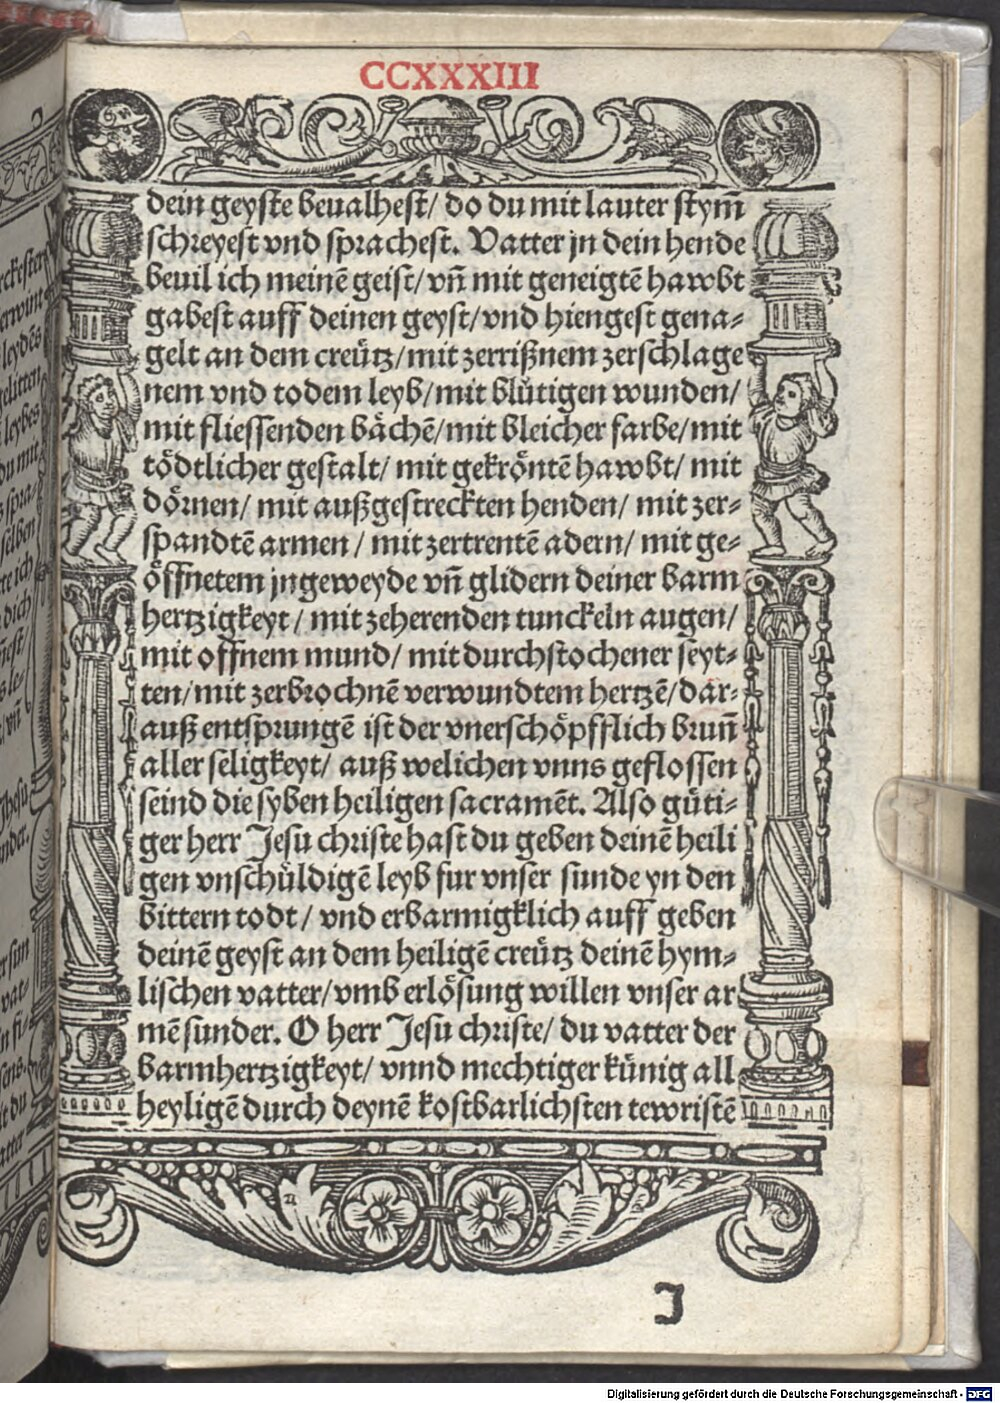 CCXXXIII
dein geyste beualhest/ do du mit lauter stym̄
schreyest vnd sprachest. Vatter jn dein hende
beuil ich meinē geist/ vn̄ mit geneigtē hawbt
gabest auff deinen geyst/ vnd hiengest gena⸗
gelt an dem creütz/ mit zerrißnem zerschlage
nem vnd todem leyb/ mit blůtigen wunden/
mit fliessenden bächē/ mit bleicher farbe/ mit
tödtlicher gestalt/ mit gekröntē hawbt/ mit
dörnen/ mit außgestreckten henden/ mit zer⸗
spandtē armen / mit zertrentē adern/ mit ge⸗
öffnetem jngeweyde vn̄ glidern deiner barm
hertzigkeyt/ mit zeherenden tunckeln augen/
mit offnem mund/ mit durchstochener seyt⸗
ten/ mit zerbrochnē verwundtem hertzē/ dar⸗
auß entsprungē ist der vnerschöpfflich brun̄
aller seligkeyt/ auß welichen vnns geflossen
seind die syben heiligen sacramēt. Also güti⸗
ger herr Jesu christe hast du geben deinē heili
gen vnschüldigē leyb fur vnser sunde yn den
bittern todt/ vnd erbarmigklich auff geben
deinē geyst an dem heiligē creütz deinē hym⸗
lischen vatter/ vmb erlösung willen vnser ar
mē sunder. O herr Jesu christe/ du vatter der
barmhertzigkeyt/ vnnd mechtiger künig all
heyligē durch deynē kostbarlichsten tewristē
J
Digitalisierung gefördert durch die Deutsche Forschungsgemeinschaft - DFG